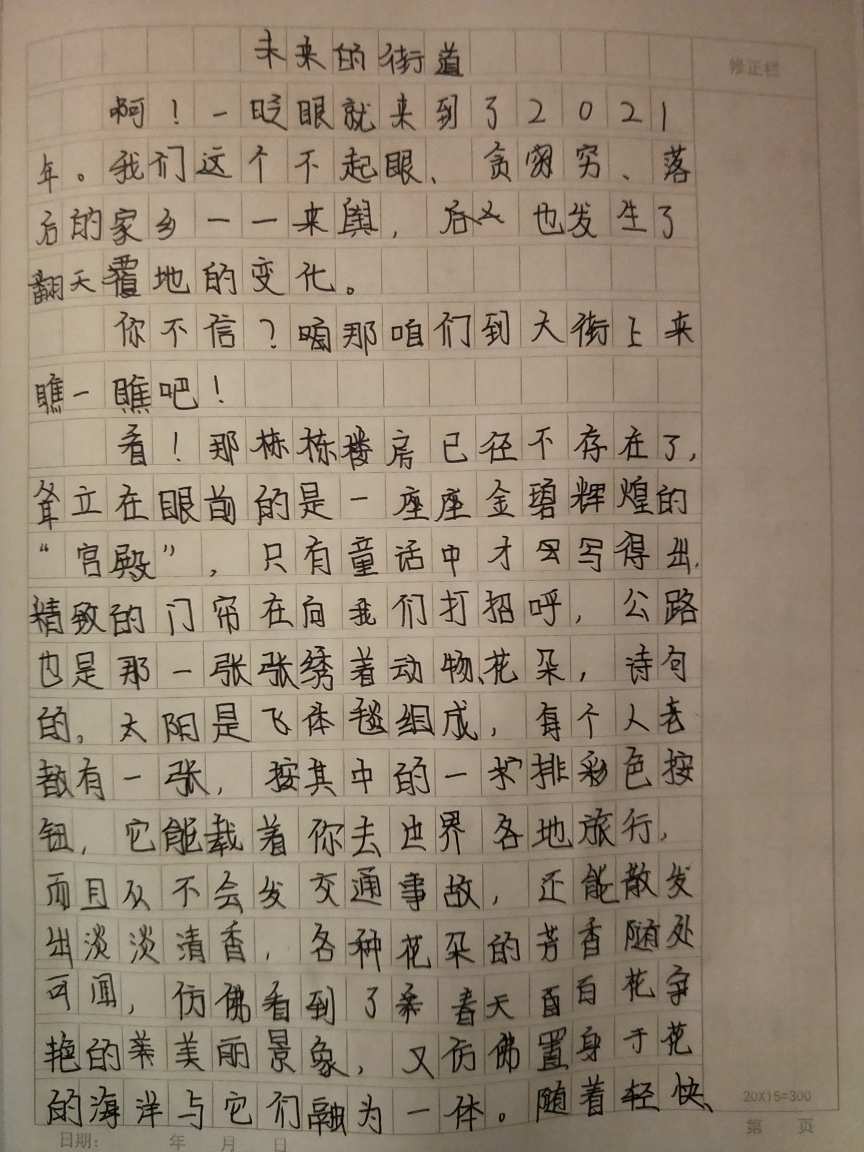 未来的街道
修正栏
啊！一眨眼就来到了2021
年。我们这个不起眼、贫穷、落
后的家乡——来舆，也发生了
翻天覆地的变化。
你不信？那咱们到大街上来
瞧一瞧吧！
看！那栋栋楼房已径不存在了，
耸立在眼前的是一座座金碧辉煌的
“宫殿”，只有童话中才写得出，
精致的门帘在向我们打招呼，公路
也是那一张张绣着动物、花朵，诗句
的。太阳是飞体毯组成，每个人老
都有一张，按其中的一排彩色按
钮，它能载着你去世界各地旅行，
而且从不会发交通事故，还能散发
出淡淡清香，各种花朵的芳香随处
可闻，仿佛看到了春天百花争
艳的美丽景象，又仿佛置身于花
的海洋与它们融为一体。随着轻快、
20X15=300
日期： 年 月 日
第 页